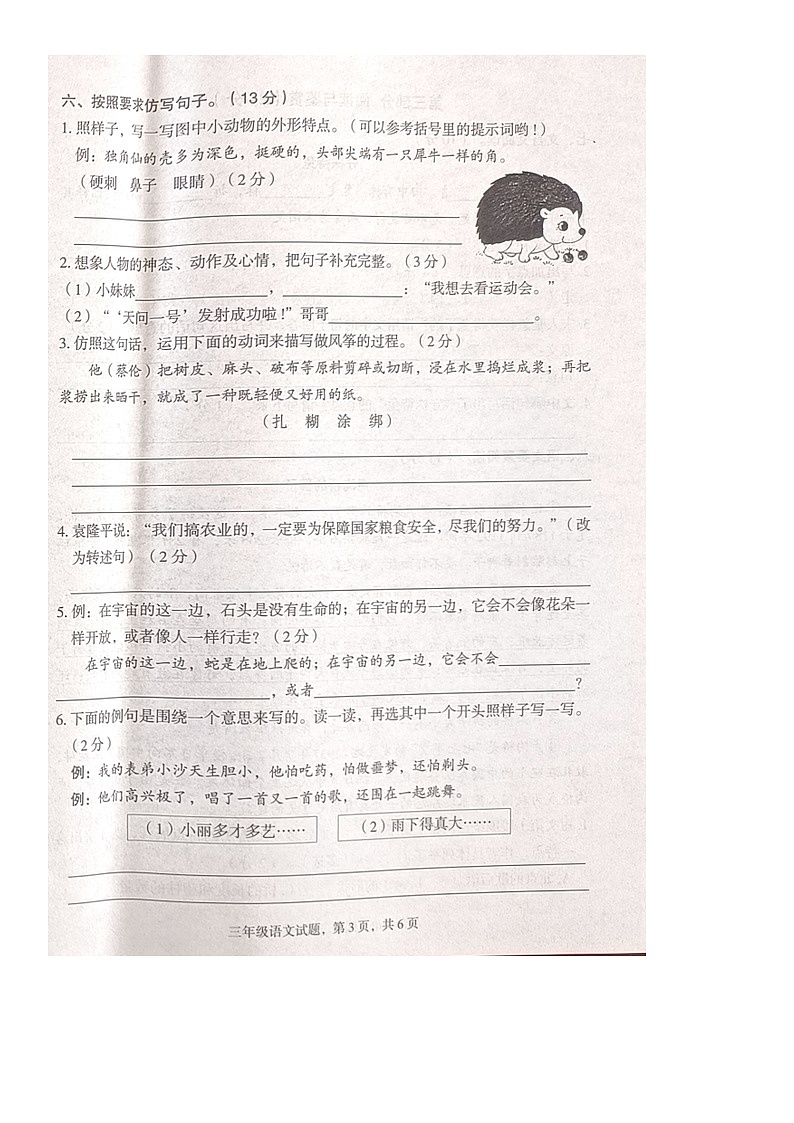 六、按照要求仿写句子。(13分)
1. 照样子，写一写图中小动物的外形特点。(可以参考括号里的提示词哟！)
例：独角仙的壳多为深色，挺硬的，头部尖端有一只犀牛一样的角。
(硬刺 鼻子 眼睛)(2分)
2. 想象人物的神态、动作及心情，把句子补充完整。(3分)
(1)小妹妹________，________：“我想去看运动会。”
(2)“‘天问一号’发射成功啦！”哥哥________。
3. 仿照这句话，运用下面的动词来描写做风筝的过程。(2分)
他(蔡伦)把树皮、麻头、破布等原料剪碎或切断，浸在水里捣烂成浆；再把
浆捞出来晒干，就成了一种既轻便又好用的纸。
(扎 糊 涂 绑)
4. 袁隆平说：“我们搞农业的，一定要为保障国家粮食安全，尽我们的努力。”(改
为转述句)(2分)
5. 例：在宇宙的这一边，石头是没有生命的；在宇宙的另一边，它会不会像花朵一
样开放，或者像人一样行走？(2分)
在宇宙的这一边，蛇是在地上爬的；在宇宙的另一边，它会不会________
________，或者________？
6. 下面的例句是围绕一个意思来写的。读一读，再选其中一个开头照样子写一写。
(2分)
例：我的表弟小沙天生胆小，他怕吃药，怕做噩梦，还怕剃头。
例：他们高兴极了，唱了一首又一首的歌，还围在一起跳舞。
(1)小丽多才多艺…… (2)雨下得真大……
三年级语文试题，第3页，共6页